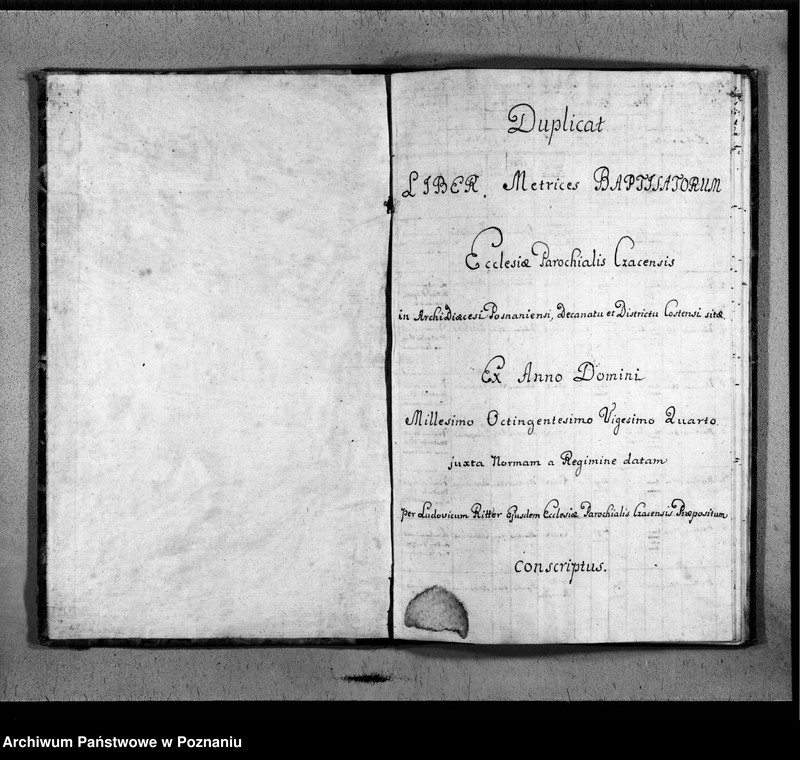 Duplicat
LIBER. Metrices BAPTISATORUM
Ecclesiæ Parochialis Czacensis
in ArchiDiæcesi Posnaniensi, Decanatu et Districtu Costensi sitæ
Ex Anno Domini
Millesimo Octingentesimo Vigesimo Quarto.
juxta Normam a Regimine datam
per Ludovicum Ritter Ejusdem Ecclesiæ Parochialis Czacensis Præpositum
conscriptus.
Archiwum Państwowe w Poznaniu